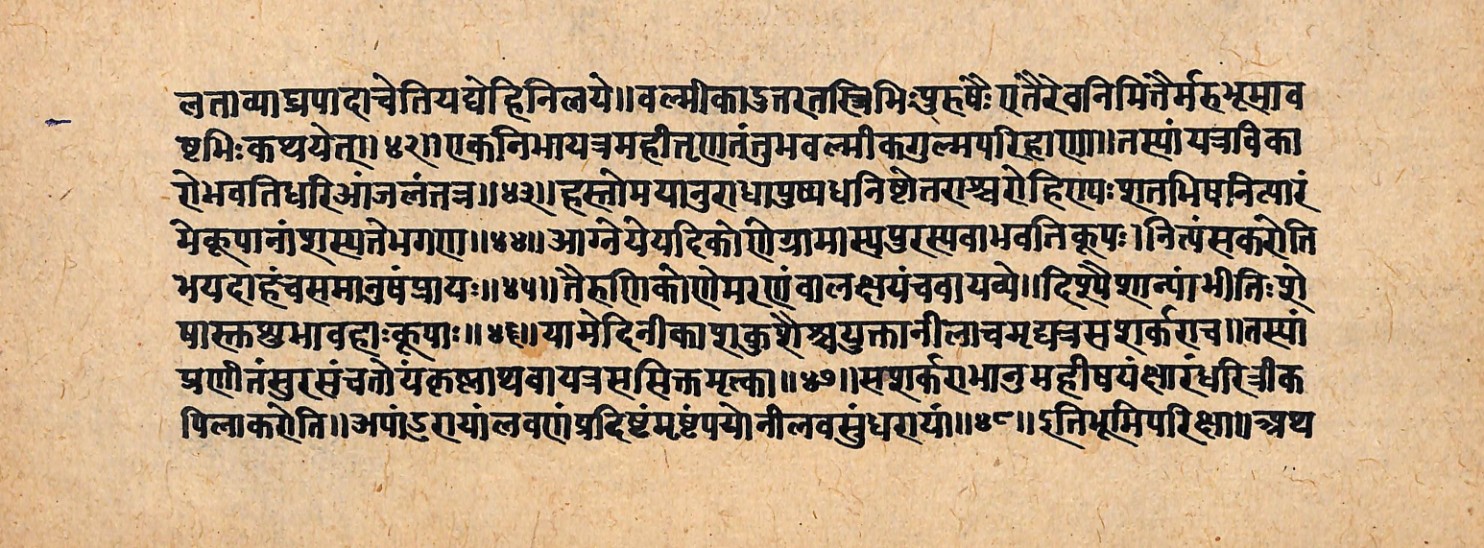 लताव्याघ्रपादाचेतियद्येहिनिलये॥वल्मीकाऽत्तरतस्त्रिभिःपुरुषैः एतैरेवनिमित्तैर्मरुभूम्राव
ष्टभिःकथयेत्॥४२॥एकनिभायत्रमहीतृणतंतुभवल्मीकगुल्मपरिहाणा॥तस्पांयत्रविका
रोभवतिधरिआंजलंतत्र॥४३॥हस्तोमयानुराधापुष्पधनिष्टोतराश्चरोहिरापःशतभिषनित्पारं
भेकूपानांशस्पतेभगण॥४४॥आग्नेयेयदिकोणेग्रामास्पपुरस्पवाभवतिकूपः।नित्पंसकरोति
भयदाहंचसमानुषंप्रायः॥४५॥तैरुणिकोणेमरणंवालक्षयंचवायव्ये॥दिश्पैशान्पांभीतिःशे
षास्तशुभावहाःकूपाः॥४६॥यामेदिनीकाशकुशैश्चयुक्तानीलाचमृद्यत्रसशर्कराच॥तस्पां
प्रणीतंसुरसंचतोयंकृष्णाथवायत्रससिक्तमृत्का॥४७॥सशर्कराभानुमहीषयंक्षारंधरित्रीक
पिलाकरोति॥अपांऽरायांलवणंप्रदिष्टंमृष्टंपयोनीलवसुंधरायां॥४८॥ऽतिभूमिपरिक्षा॥अथ